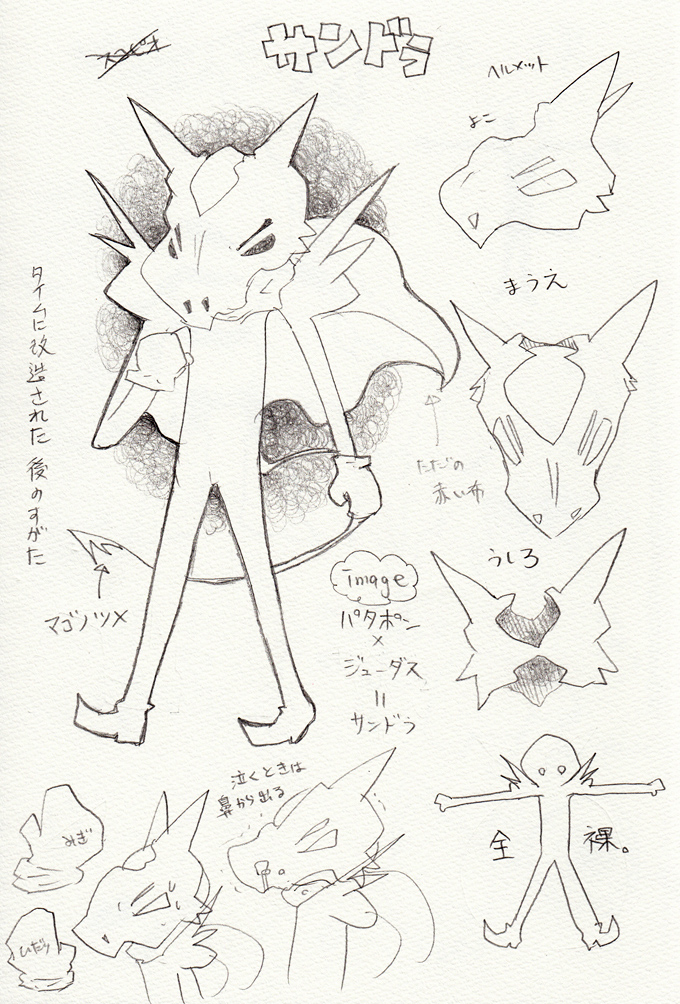 サンドラ
ヘルメット
よこ
まうえ
タイムに改造された後のすがた
ただの
赤い布
マゴノツメ
image
パタポン
×
ジューダス
=
サンドラ
うしろ
泣くときは
鼻から出る
みぎ
ひだり
全 裸。